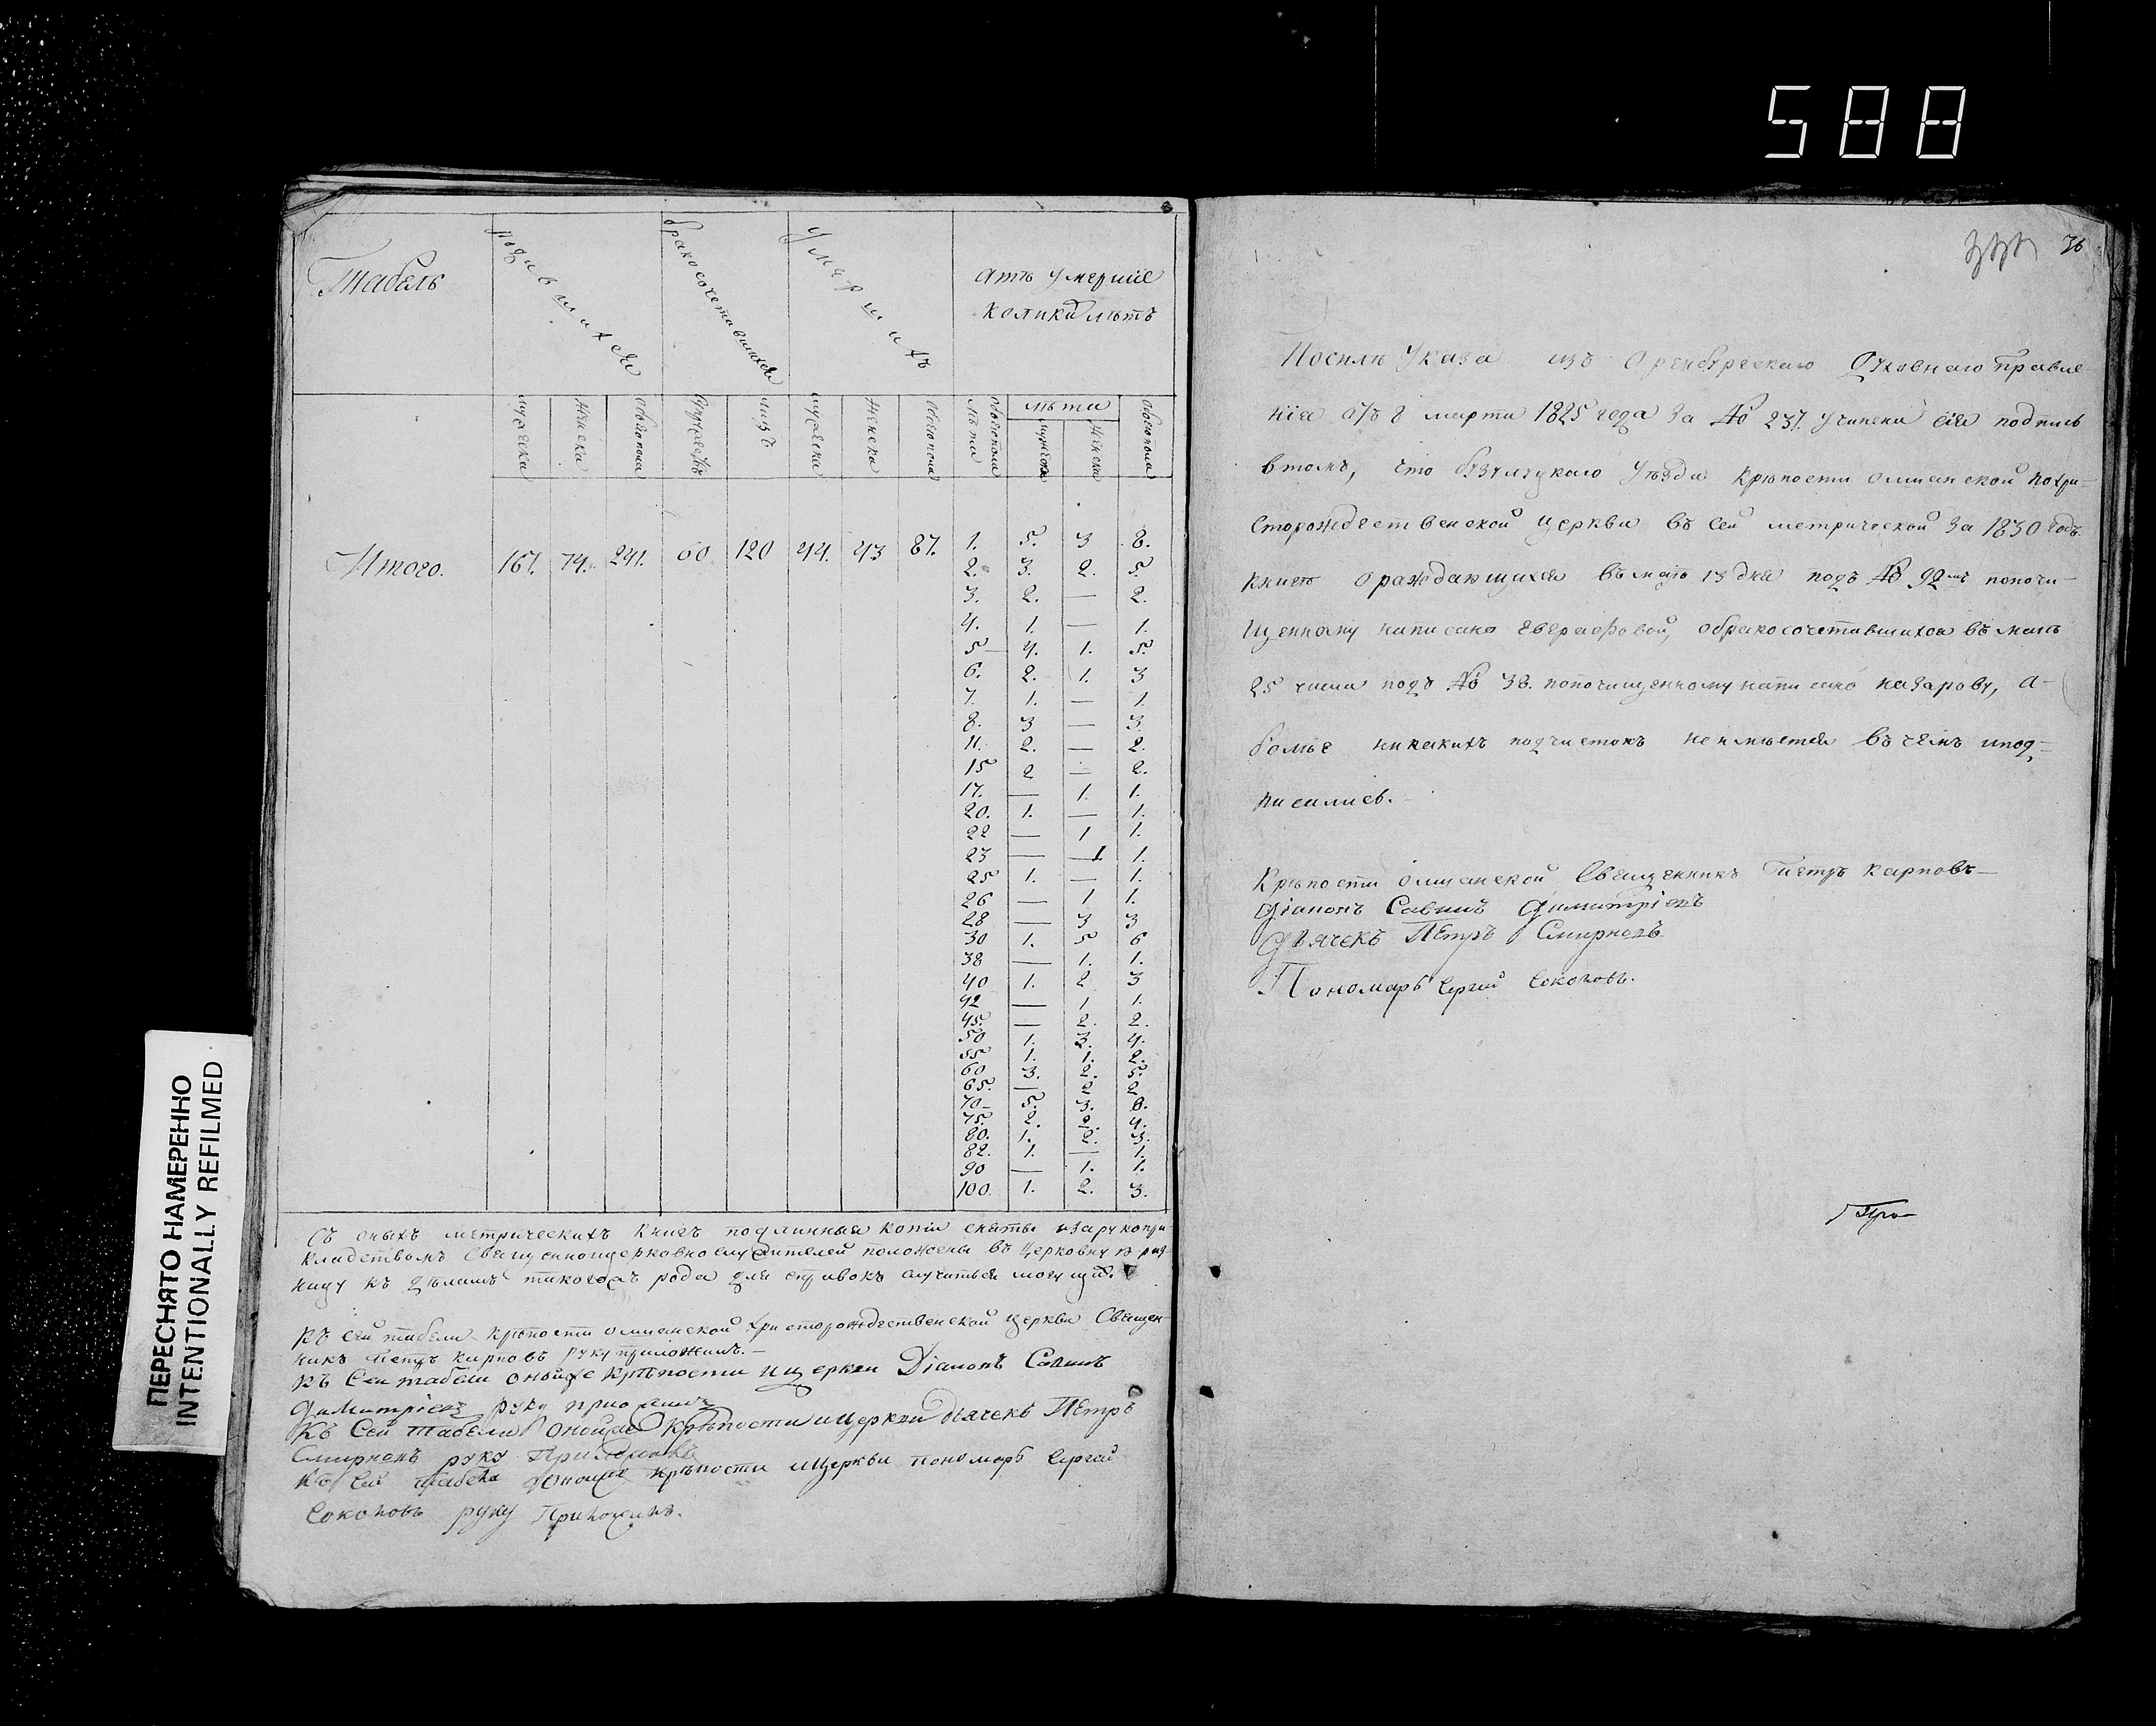 588
Табель
родившихся
бракосочетавшихся
умершихъ
лѣтъ умершіе
коликилѣтъ
мужеска
женска
обоегопола
лицъ
мужеска
женска
обоегопола
обоегопола
лѣта
лѣта
женска
обоегопола
Итого.
167. 74. 241. 60 120 44. 43 87.
1. 5. 3 8.
2. 3. 2. 5.
3. 2. — 2.
4. 1. — 1.
5 4. 1. 5.
6. 2. 1. 3
7. 1. — 1.
8. 3 — 3.
11. 2. — 2.
15 2 — 2.
17. — 1. 1.
20. 1. — 1.
22 — 1 1.
23 — 1 1.
25 1. — 1.
26 — 1 1.
28 — 3 3
30 1. 5 6
38 — 1. 1.
40 1. 2 3
42 — 1 1.
45. — 2. 2.
50 1. 3. 4.
55 1. 1. 2.
60 3. 2. 5.
65. — 2 2
70 5. 3. 8.
75. 2. 2. 4.
80. 1. 2. 3.
82. 1. — 1.
90 — 1. 1.
100. 1. 2. 3.
Съ оныхъ метрическихъ книгъ подлинныя копіи сняты изарукопри
кладствомъ священноцерковнослужителей положены въ церковную риз
ницу къ дѣламъ такогожъ рода для справокъ случиться могущихъ
Къ сей табели крѣпости олшанской христорождественской церкви Священ
никъ Петръ Карповъ руку приложилъ.—
Къ Сей табели онойже крѣпости ицеркви Діаконъ Савинъ
Димитріевъ руку приложилъ
Къ Сей табели онойже крѣпости ицеркви дьячекъ Петръ
Смирновъ руку Приложилъ
Къ Сей табели онойже крѣпости ицеркви пономарь Сергей
Соколовъ руку Приложилъ.
ПЕРЕСНЯТО НАМЕРЕННО
INTENTIONALLY REFILMED
76
Посилѣ Указа изъ Оренбургскаго Духовнаго правле
нія отъ 8 марта 1825 года за № 237. учинена сія подпись
втомъ, что бузулуцкаго уѣзда крѣпости олшанской похри-
сторождественской церкви въ сей метрической за 1830 годъ
книгѣ ораждающихся въ маѣ 13 дня подъ № 92мъ попочи-
щенному написано Евграфовой, обракосочетавшихся въ маѣ
25 числа подъ № 38. попочищенному написано назарову, а-
болѣе никакихъ подчистокъ неимѣется въ чемъ ипод-
писались.—
Крѣпости олшанской Священникъ Петръ Карповъ—
Діаконъ Савинъ Димитріевъ
Дьячекъ Петръ Смирновъ
Пономарь Сергей Соколовъ.